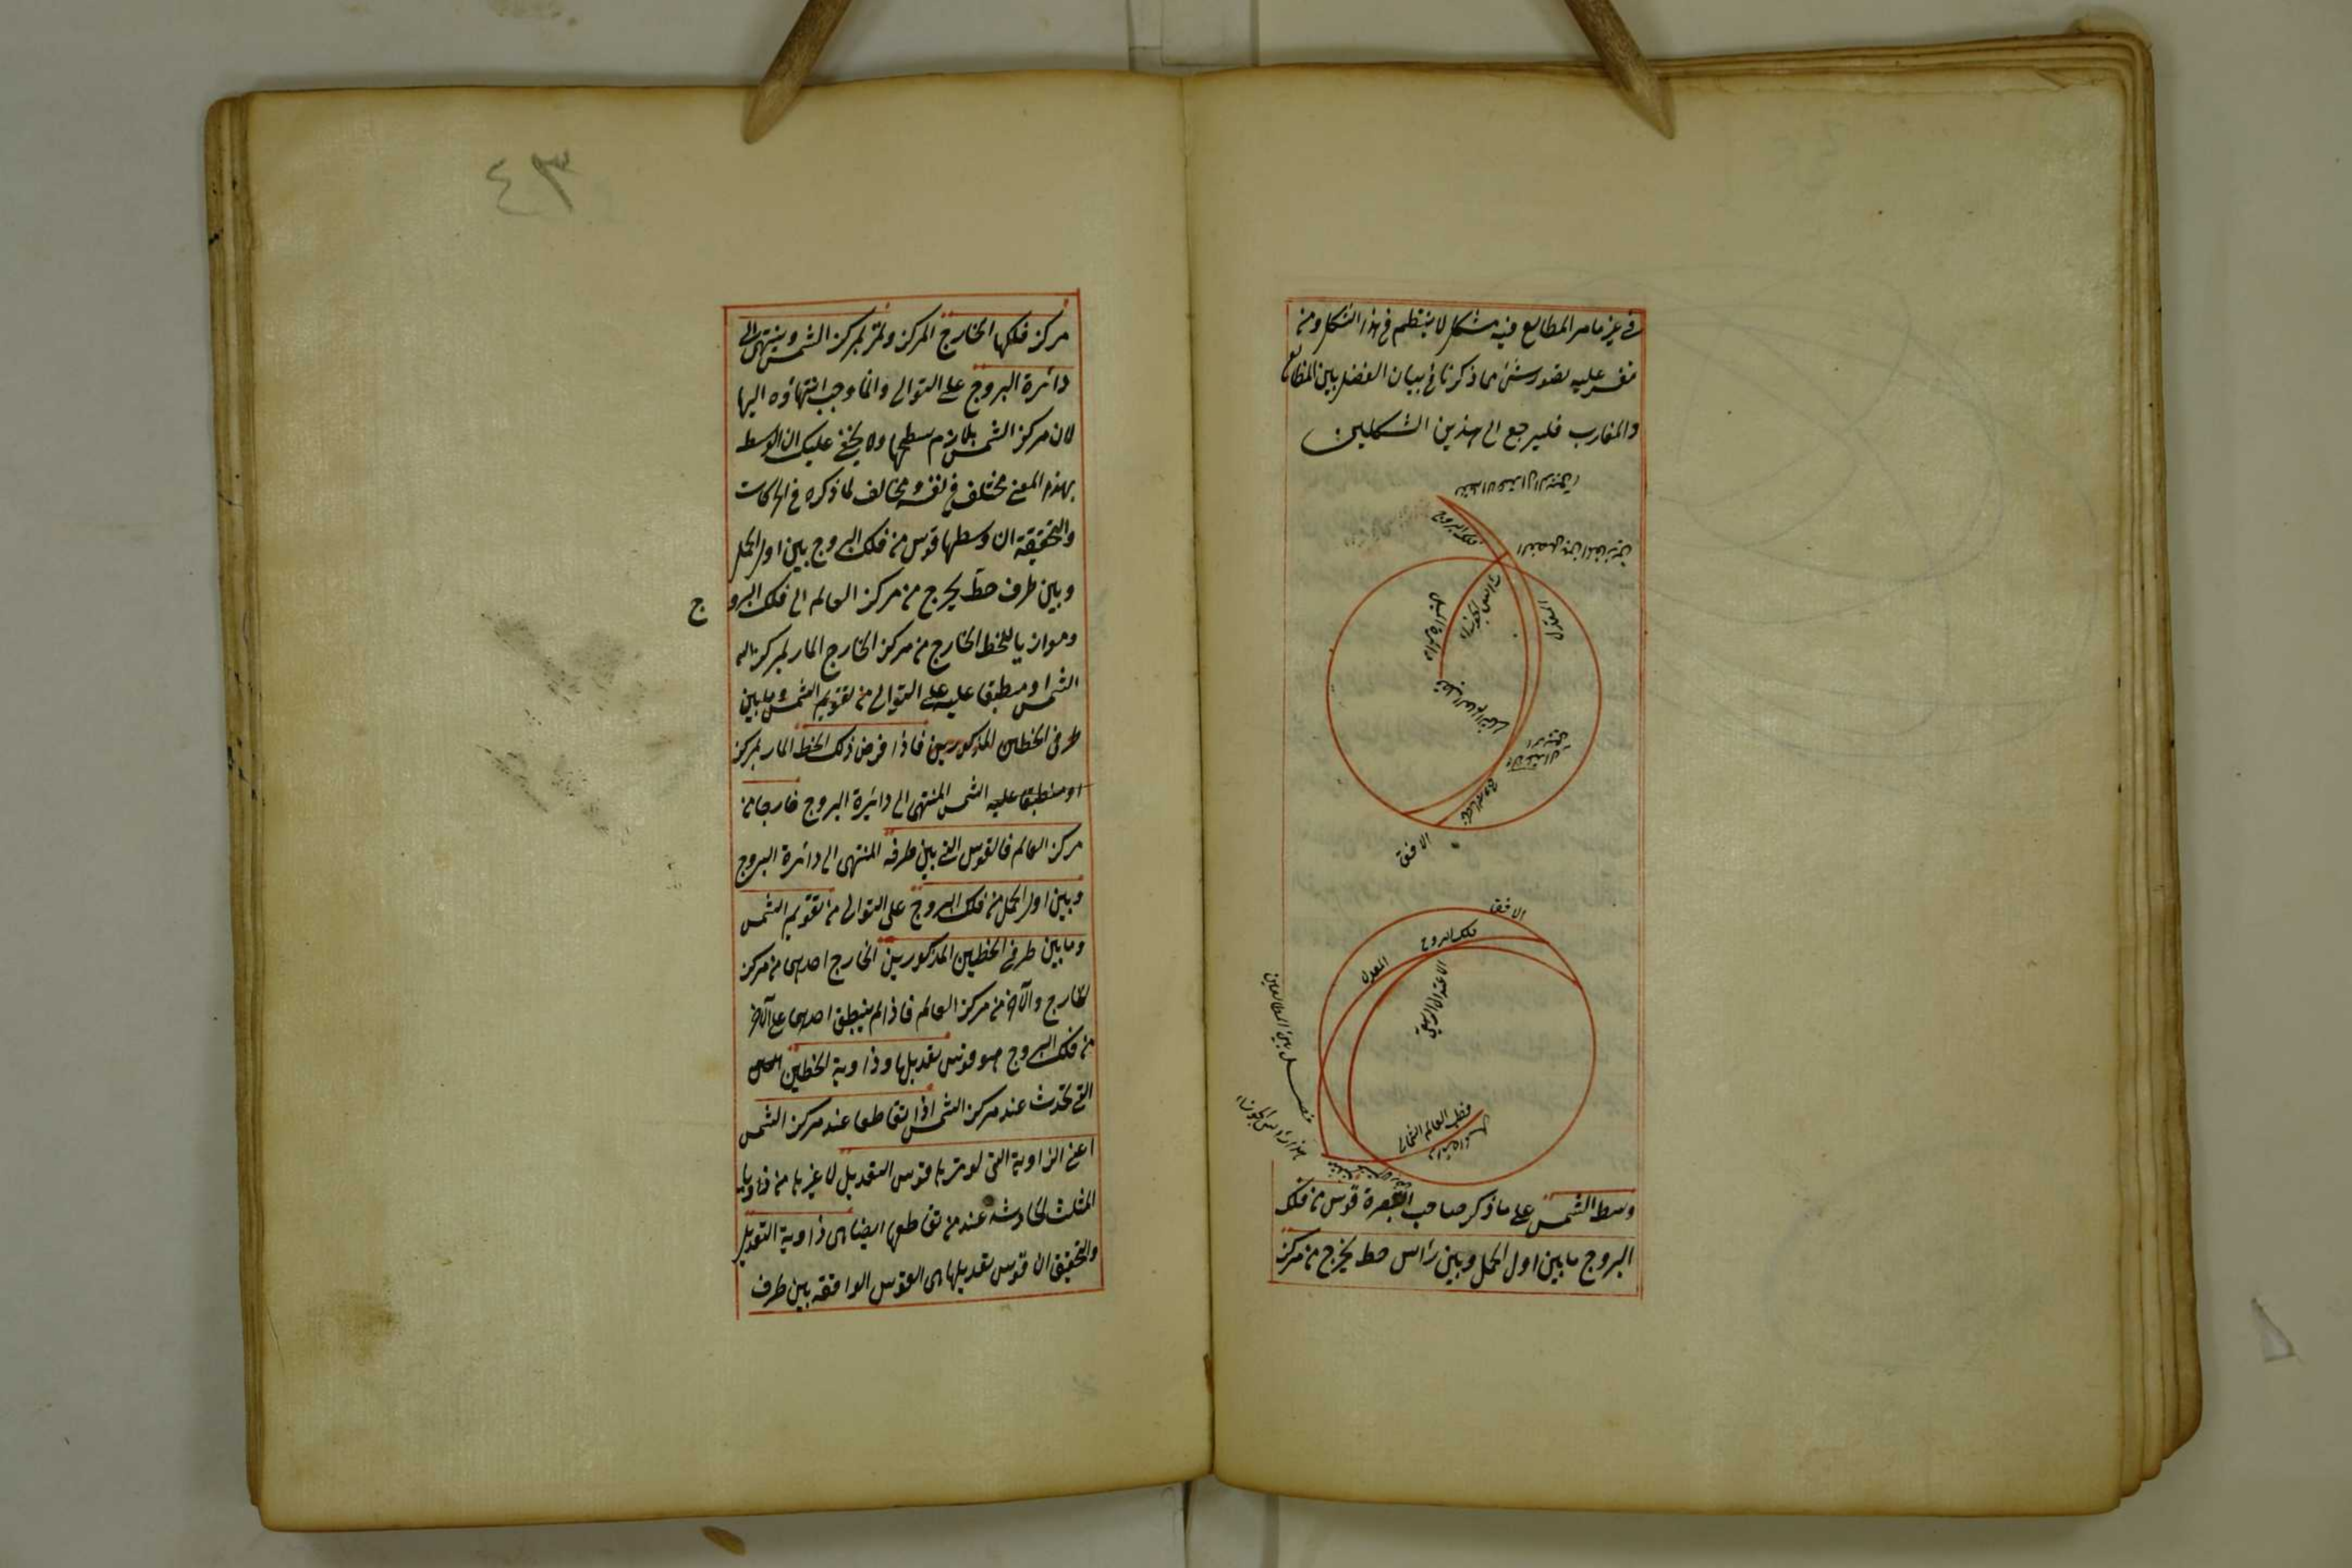 في غير ما مر المطالع فيه مشكل لا ينتظم في هذا الشكل ومن
عليه تصور شئ مما ذكرنا في بيان الفضل بين المطالع
والمغارب فليرجع الى هذين الشكلين
فلك البروج
المعدل
راس الجوزاء
دايرة الميل
قطب العالم
فلك البروج
الافق
الافق
فلك البروج
المعدل
الاعتدال الربيعي
فضل بين المطالعين
راس الجوزاء
قطب العالم الشمالي
وسط الشمس على ما ذكر صاحب التبصرة قوس من فلك
البروج ما بين اول الحمل وبين رأس خط يخرج من مركز
٤٣
مركز فلكها الخارج المركز ويمر بمركز الشمس وينتهى الى
دائرة البروج على التوالى وانما وجب انتهاؤه اليها
لان مركز الشمس يلازم سطحها ولا يخفى عليك ان الوسط
بهذا المعنى مختلف في نفسه مخالف لما ذكره في الحركات
والتحقيق ان وسطها قوس من فلك البروج بين اول الحمل
وبين طرف خط يخرج من مركز العالم الى فلك البرو
ج
وموازيا للخط الخارج من مركز الخارج المار بمركز
الشمس او منطبقا عليه على التوالى من تقويم الشمس وما بين
طرفى الخطين المذكورين فاذا فرض ذلك الخط المار بمركز
او منطبقا عليه الشمس المنتهى الى دائرة البروج خارجا من
مركز العالم فالقوس التى بين طرفه المنتهى الى دائرة البروج
وبين اول الحمل من فلك البروج على التوالى من تقويم الشمس
وما بين طرفى الخطين المذكورين الخارج احدهما من مركز
الخارج والآخر من مركز العالم فاذا لم ينطبق احدهما على الآخر
من فلك البروج هو قوس تعديلها وزاوية الخطين
التى تحدث عند مركز الشمس اذا تقاطعا عند مركز الشمس
اعنى الزاوية التى يوترها قوس التعديل لا غيرها من زوايا
المثلث الحادثة عند من تقاطعها ايضا هى زاوية التعديل
والتحقيق ان قوس تعديلها هى القوس الواقعة بين طرف